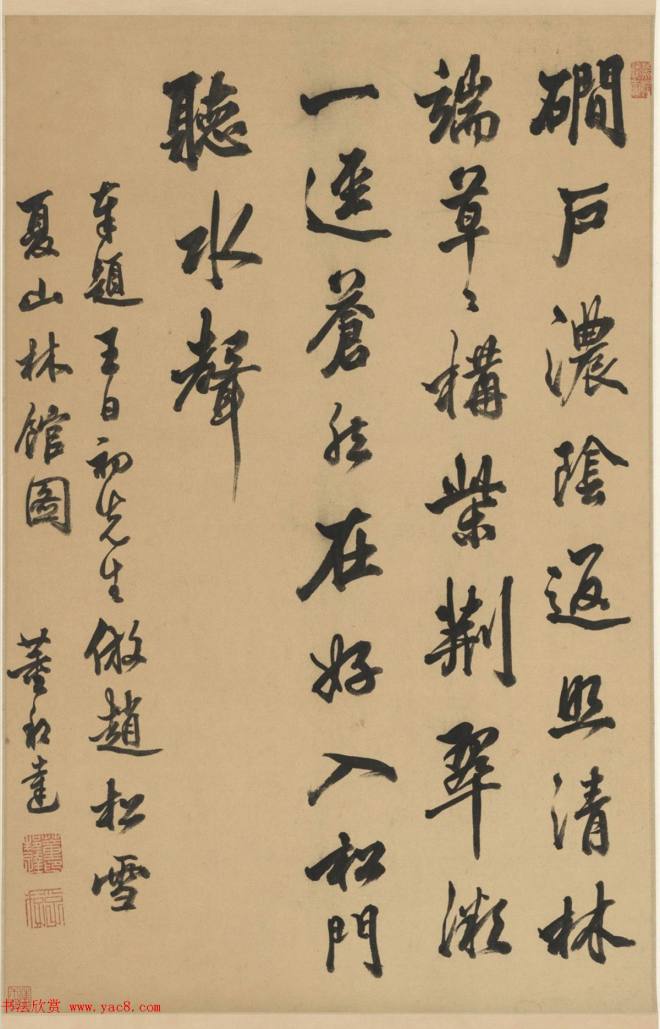 礀戶濃陰返照清林
端草〻構柴荆翠微
一逕蒼然在好入松門
聽水聲
奉題王日初先生倣趙松雪
夏山林館圖 董邦達
书法欣赏 www.yac8.com